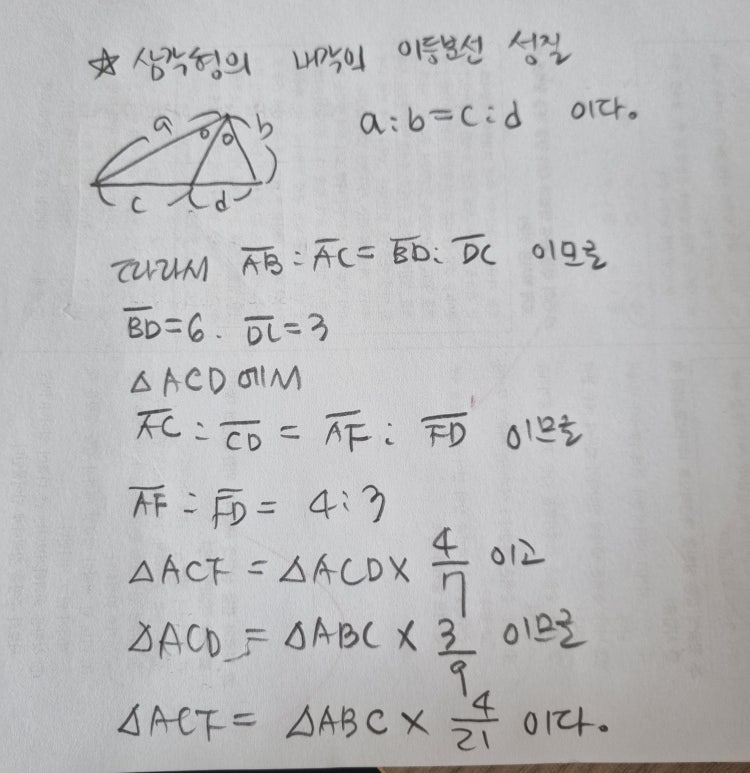 ☆ 삼각형의 내각의 이등분선 성질
a b a:b=c:d 이다.
c d
따라서 A̅B̅:A̅C̅=B̅D̅:D̅C̅ 이므로
B̅D̅=6. D̅C̅=3
△ACD에서
A̅C̅:C̅D̅=A̅F̅:F̅D̅ 이므로
A̅F̅:F̅D̅=4:3
△ACF=△ACD×4/7 이고
△ACD=△ABC×3/9 이므로
△ACF=△ABC×4/21 이다.